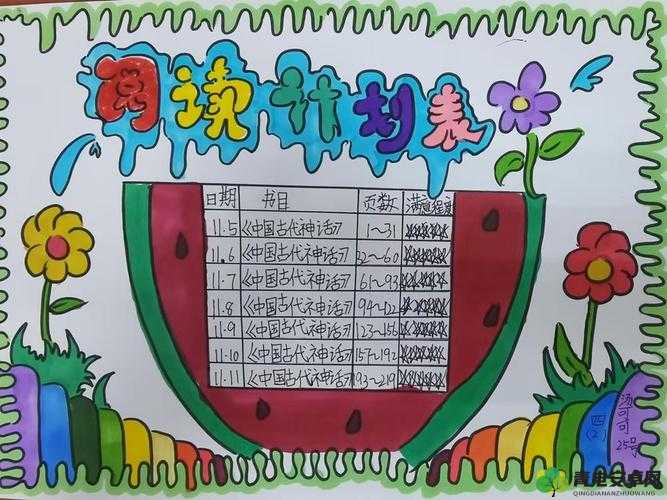 阅读计划表
日期 书目 页数 满意程度
11.5 《中国古代神话》 1~31
11.6 《中国古代神话》 32~60
11.7 《中国古代神话》 61~93
11.8 《中国古代神话》 94~122
11.9 《中国古代神话》 123~156
11.10 《中国古代神话》 157~192
11.11 《中国古代神话》 193~219
四(2)
汤可可
25号
青电安卓网
QINGDIANANZHUOWANG